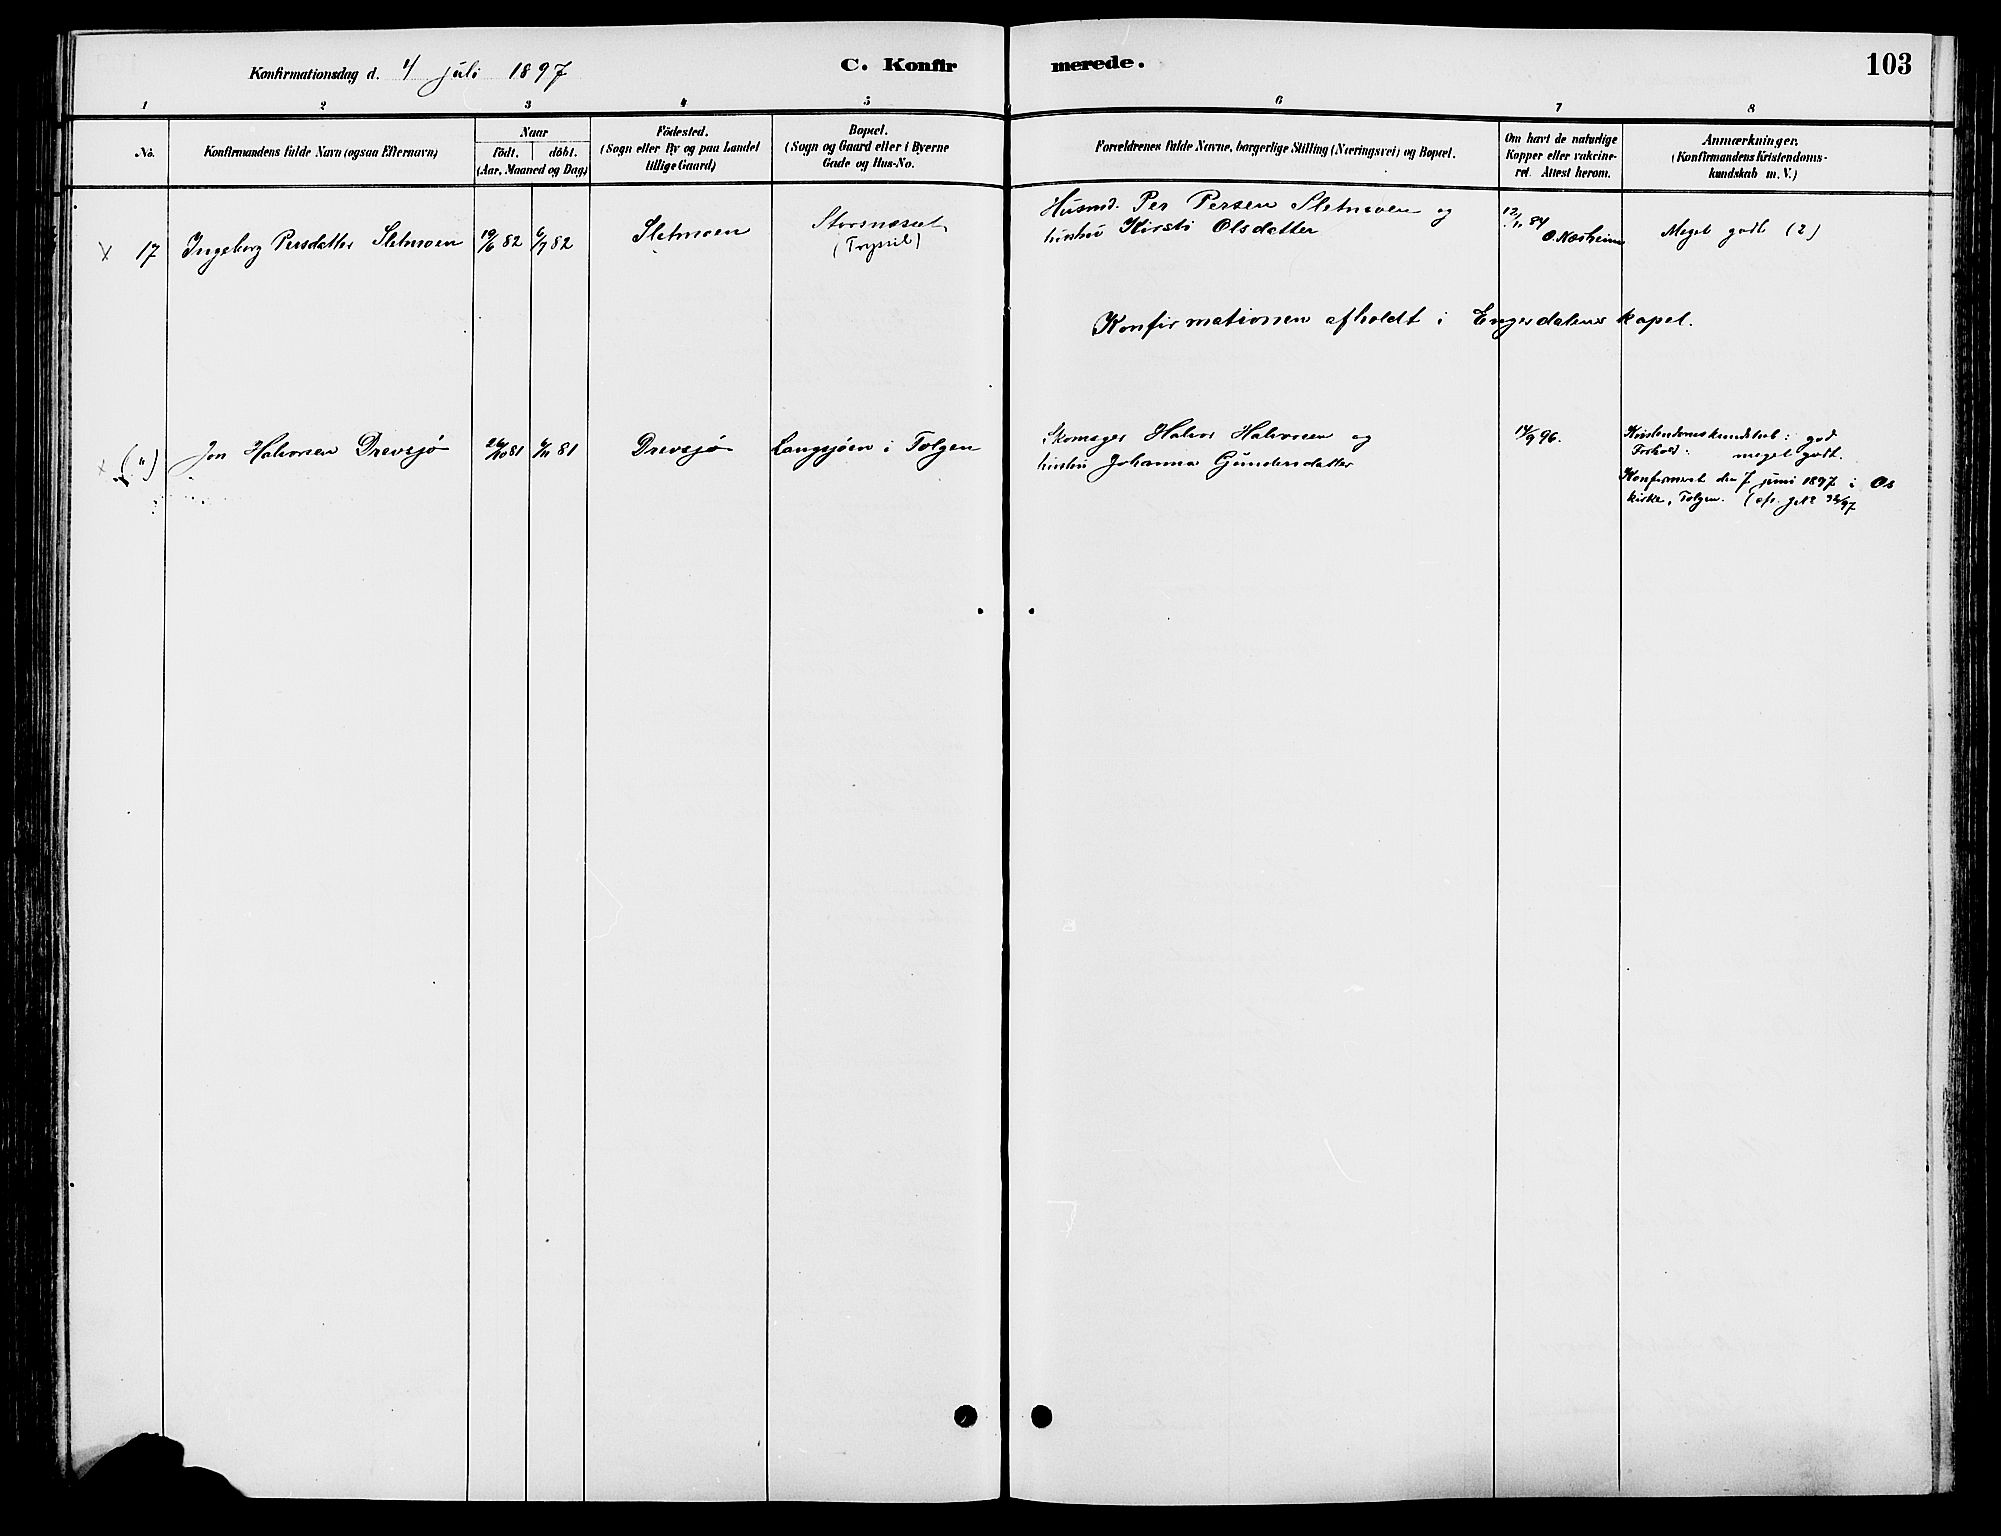 Konfirmationsdag d. 4 juli 1897
C. Konfir merede.
103
1 2 3 4 5 6 7 8
No.
Konfirmandens fulde Navn (ogsaa Efternavn)
Naar
Födt. döbt.
(Aar, Maaned og Dag)
Födested.
(Sogn eller By og paa Landet
tillige Gaard)
Bopæl.
(Sogn og Gaard eller i Byerne
Gade og Hus-No.
Forældrenes fulde Navne, borgerlige Stilling (Næringsvei) og Bopæl.
Om havt de naturlige
Kopper eller vakcine-
ret. Attest herom.
Anmærkninger.
(Konfirmandens Kristendoms-
kundskab m. V.)
x 17 Ingeborg Persdatter Sletmoen 19/6 82 6/7 82 Sletmoen Storsnæset
(Trysil)
Husmd. Per Persen Sletmoen og
hustru Kirsti Olsdatter
84
O. Næsheim
Meget godt (2)
Konfirmationen afholdt i Engerdalens kapel.
x (") Jon Halvorsen Drevsjø 26/10 81 6/11 81 Drevsjø Langsjøen i Tolgen
Skomager Halvor Halvorsen og
hustru Johanna Gundersdatter
14/9 96.
Kristendomskundskab: god
Forhold: meget godt.
Konfirmeret den 7 juni 1897 i Os
kirke, Tolgen.